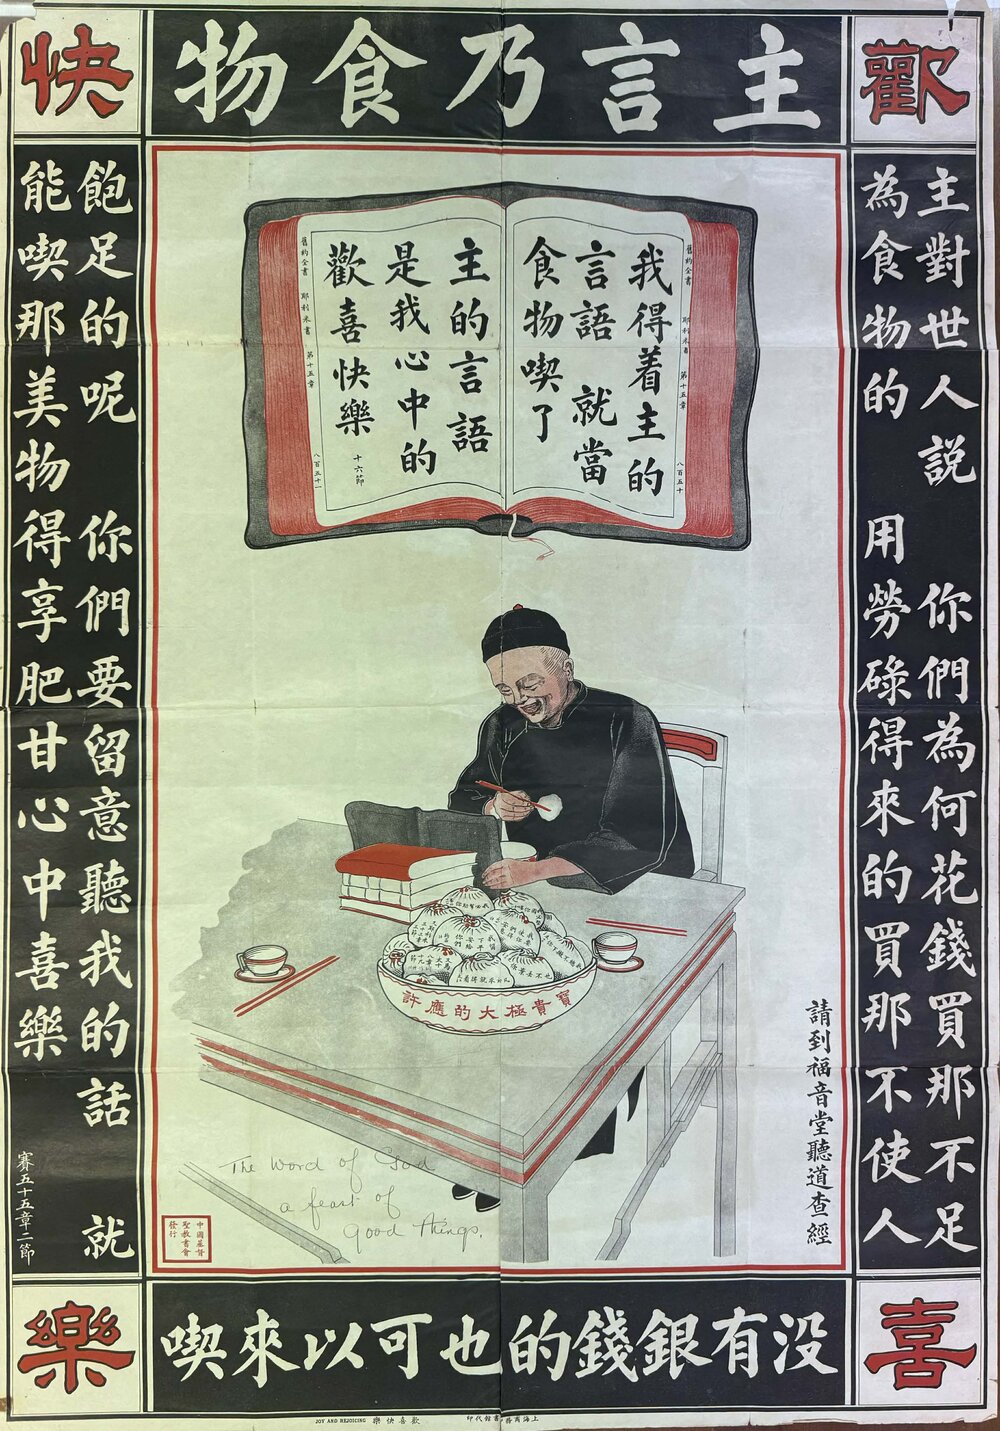 主言乃食物
歡
喜
快
樂
主對世人説 你們為何花錢買那不足
為食物的 用勞碌得來的買那不使人
飽足的呢 你們要留意聽我的話 就
能喫那美物得享肥甘心中喜樂
賽五十五章二節
舊約全書 耶利米書 第十五章 八百五十
我得着主的
言語 就當
食物喫了
主的言語
是我心中的
歡喜快樂
十六節
舊約全書 耶利米書 第十五章 八百五十一
許應的大極貴寶
請到福音堂聽道查經
The Word of God
a feast of
Good Things.
中國基督
聖教書會
發行
没有銀錢的也可以來喫
JOY AND REJOICING 歡喜快樂
上海商務印書館代印